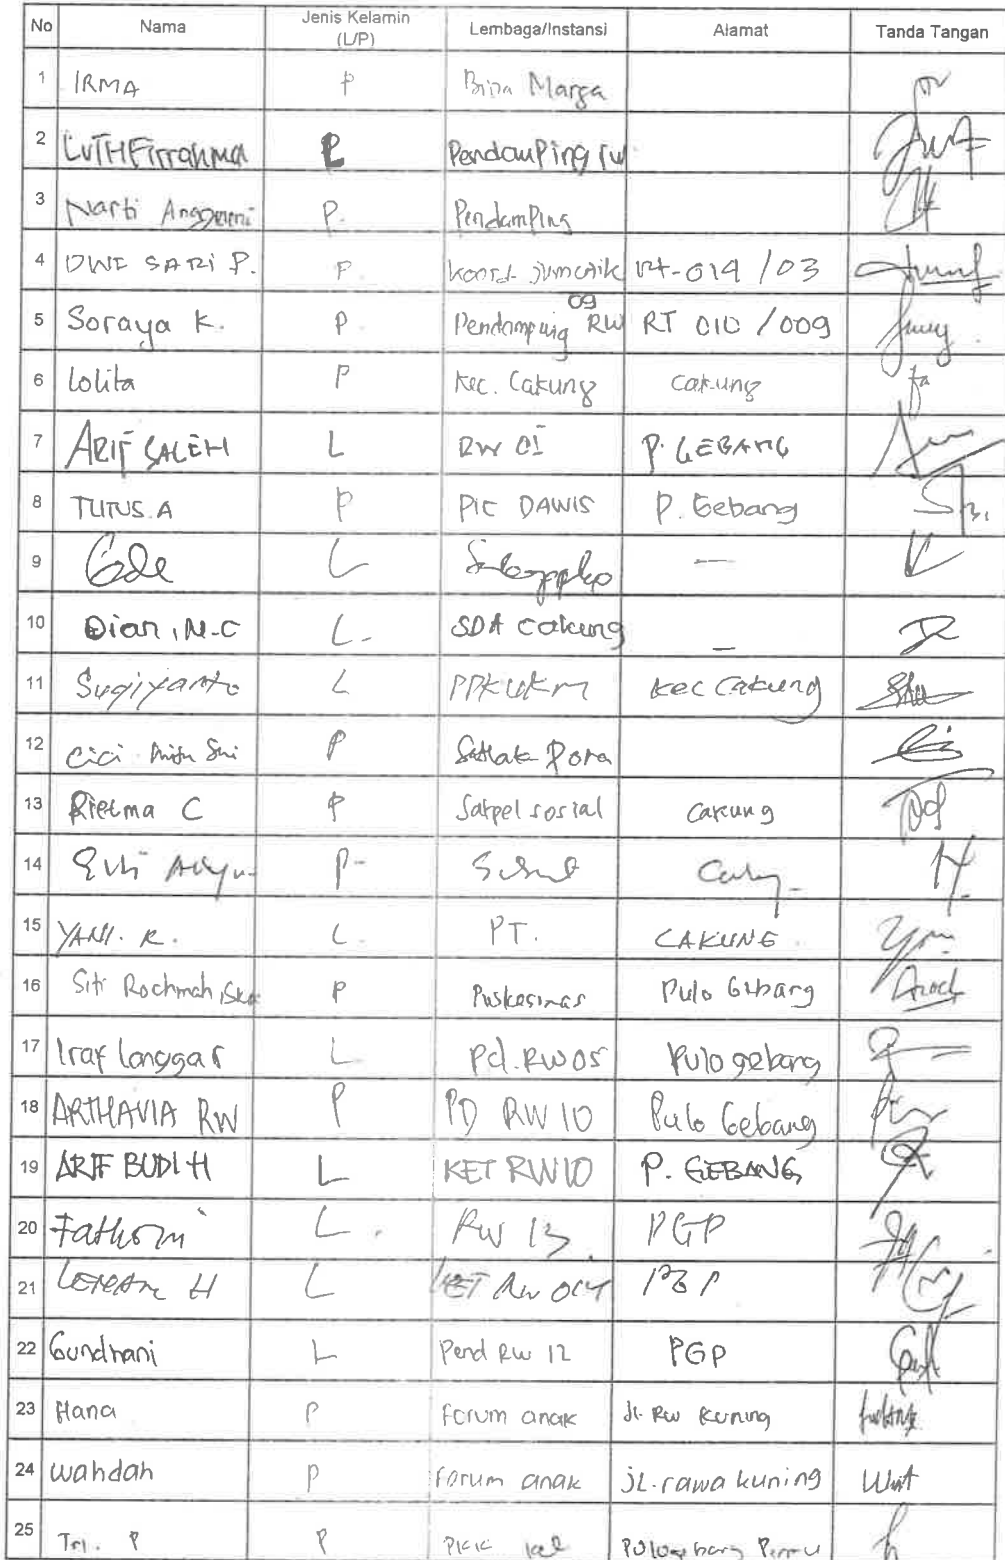 No Nama Jenis Kelamin (L/P) Lembaga/Instansi Alamat Tanda Tangan
1 IRMA P Bina Marga
2 LUTHFirrahma P Pendamping rw
3 Narti Anggereni P. Pendamping
4 DWI SARI P. P. koord. jumantik rt-014 /03
5 Soraya K. P. Pendamping RW 09 RT 010 /009
6 Lolita P Kec. Cakung Cakung
7 ARIF SALEH L RW 01 P. GEBANG
8 TUTUS.A P PIC DAWIS P. Gebang
9 L —
10 Dian, N.C L. SDA Cakung _
11 Sugiyanto L PPKUKM Kec Cakung
12 Cici P Satlak Pora
13 P Satpel sosial Cakung
14 P-
15 YANI. R. L. PT. CAKUNG
16 Siti Rochmah P Puskesmas Pulo Gebang
17 Iraf Langgar L Pd. RW 05 Pulo gebang
18 ARTHAVIA RW P PD RW 10 Pulo Gebang
19 ARIF BUDI H L KET RW 10 P. GEBANG
20 Fathoni L. RW 13 PGP
21 H L KET RW 014 PGP
22 Gundrani L Pend RW 12 PGP
23 Hana P Forum anak Jl. Rw Kuning
24 Wahdah P Forum anak jL. rawa kuning
25 Tri. P P PKK kel Pulogebang